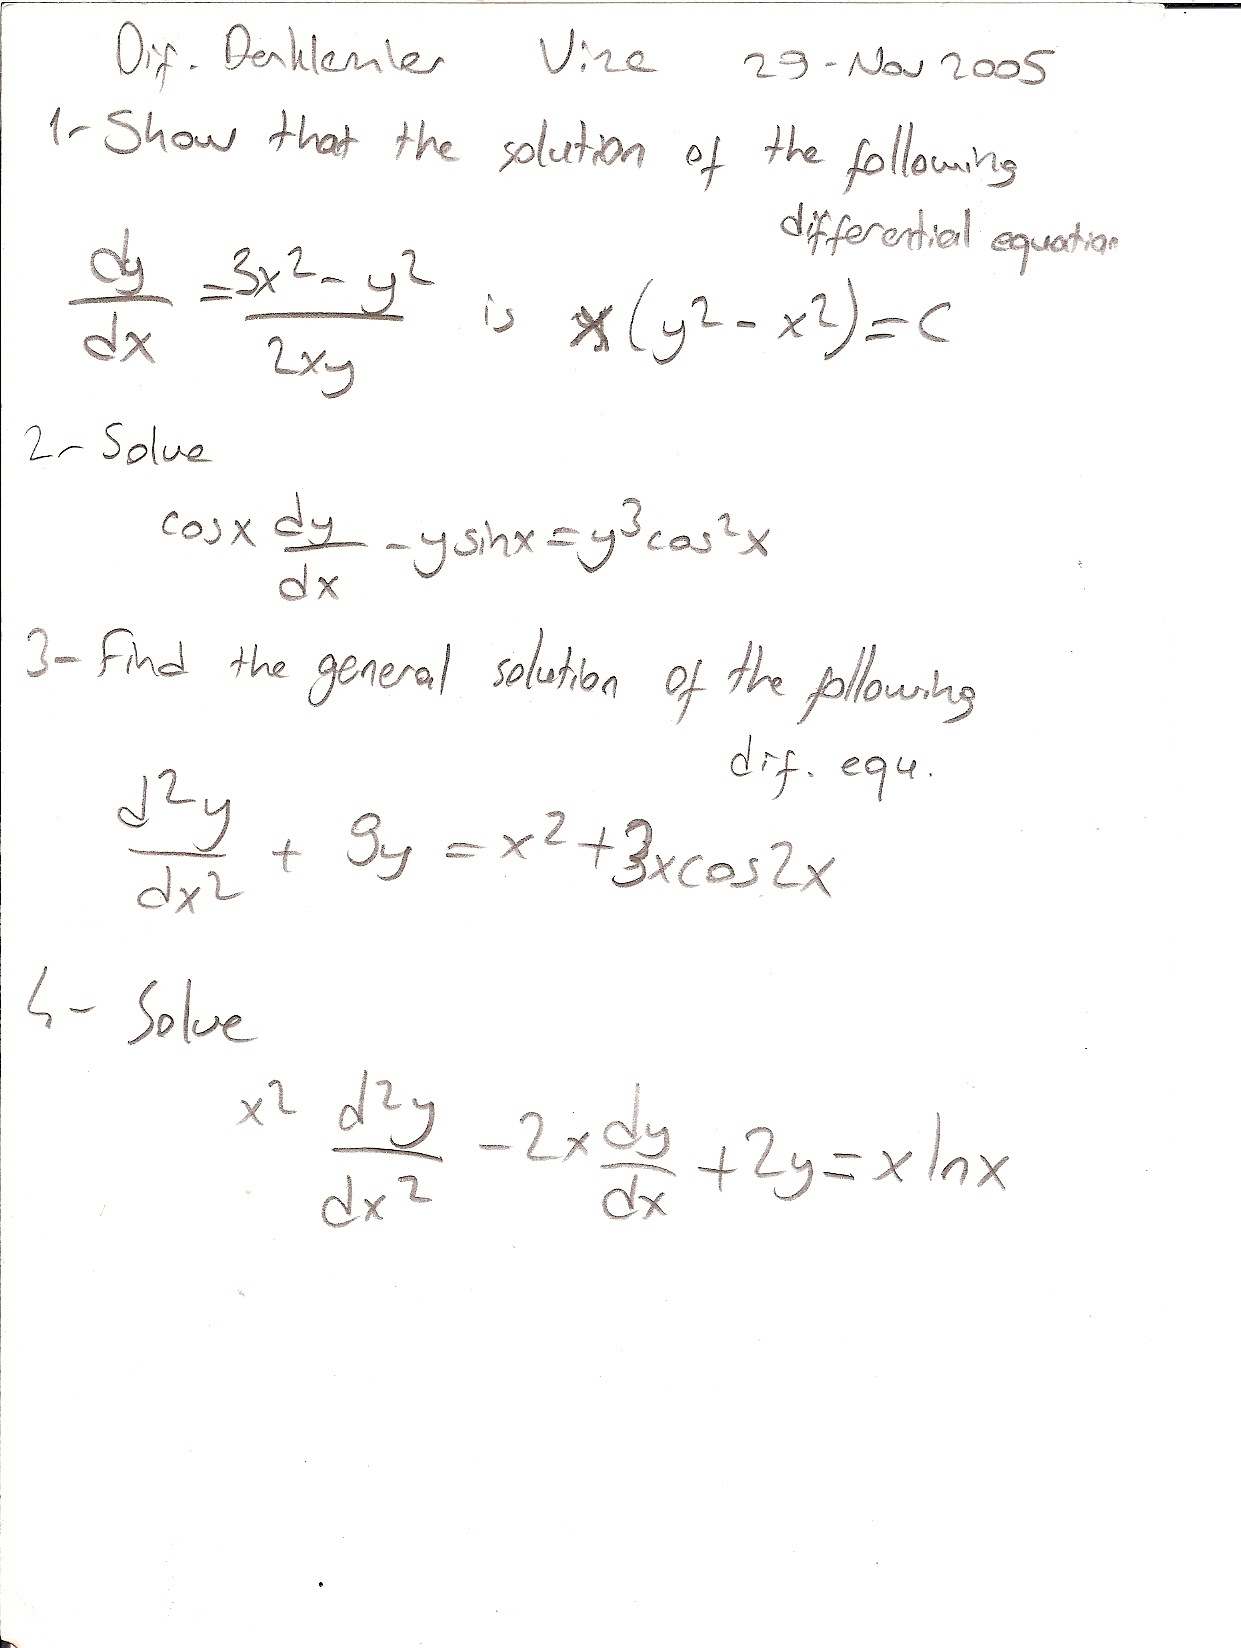 Dif. Denklemler Vize 29-Nov 2005
1- Show that the solution of the following
differential equation
dy/dx = 3x² - y² / 2xy is x(y² - x²) = C
2- Solve
cosx dy/dx - y sinx = y³cos²x
3- Find the general solution of the following
dif. equ.
d²y/dx² + 9y = x² + 3xcos2x
4- Solve
x² d²y/dx² - 2x dy/dx + 2y = x lnx